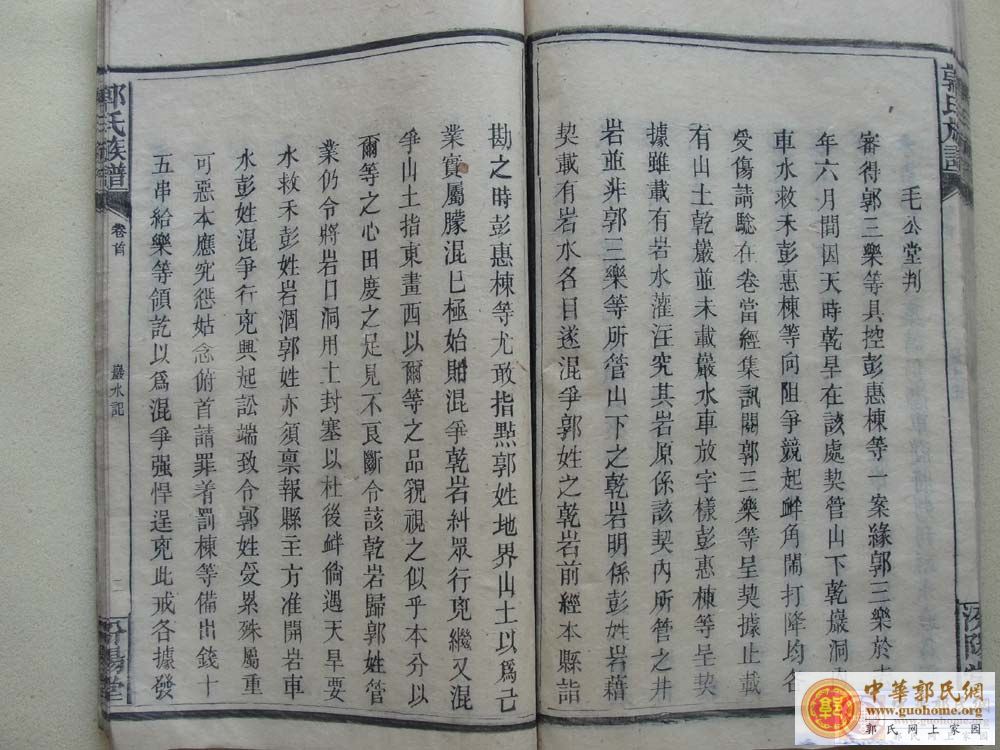 郭氏族譜
毛公堂判
審得郭三樂等具控彭惠棟等一案緣郭三樂於
年六月間因天時乾旱在該處契管山下乾巖洞
車水救禾彭惠棟等向阻爭競起衅角鬧打降均各
受傷請驗在卷當經集訊閱郭三樂等呈契據止載
有山土乾巖並未載巖水車放字樣彭惠棟等呈契
據雖載有岩水灌注究其岩原係該契內所管之井
岩並非郭三樂等所管山下之乾岩明係彭姓岩藉
契載有岩水名目遂混爭郭姓之乾岩前經本縣詣
勘之時彭惠棟等尤敢指點郭姓地界山土以爲己
業實屬朦混已極始賄混爭乾岩糾眾行兇繼又混
爭山土指東畫西以爾等之品貌視之似乎本分以
爾等之心田度之足見不良斷令該乾岩歸郭姓管
業仍令將岩口洞用土封塞以杜後衅倘遇天旱要
水救禾彭姓岩涸郭姓亦須稟報縣主方准開岩車
水彭姓混爭行兇興起訟端致令郭姓受累殊屬
可惡本應究惩姑念俯首請罪着罰棟等備出錢十
五串給樂等領訖以爲混爭强悍逞兇此戒各據發
郭氏族譜
卷首
巖水記
二
汾陽堂
中華郭氏網
www.guohome.org
郭氏網上家園